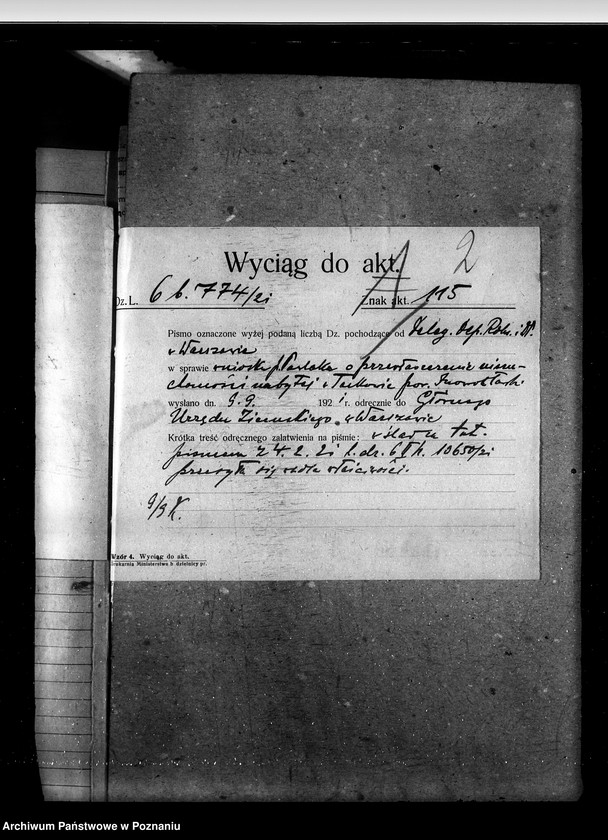 2
Wyciąg do akt.
Dz. L. 6 b. 774/21 Znak akt. 115
Pismo oznaczone wyżej podaną liczbą Dz. pochodzące od Deleg. Dep. Roln. i
w Warszawie
w sprawie wniosku p. o przewłaszczenie nieru-
chomości nabytej w pow. Inowrocław
wysłano dn. 9.9. 1921 r. odręcznie do Głównego
Urzędu Ziemskiego w Warszawie
Krótka treść odręcznego załatwienia na piśmie: w ślad za tut.
pismem z 4. 2. 21 l. dz. 6 b. 10650/21
przesyła się wedle właściwości.
9/9 K.
Wzór 4. Wyciąg do akt.
Drukarnia Ministerstwa b. dzielnicy pr.
Archiwum Państwowe w Poznaniu